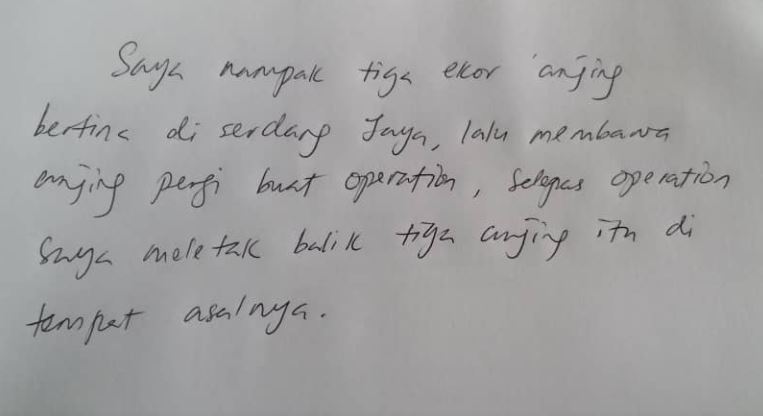 Saya nampak tiga ekor anjing
bertina di serdang Jaya, lalu membawa
anjing pergi buat operation, selepas operation
saya meletak balik tiga anjing itu di
tempat asalnya.